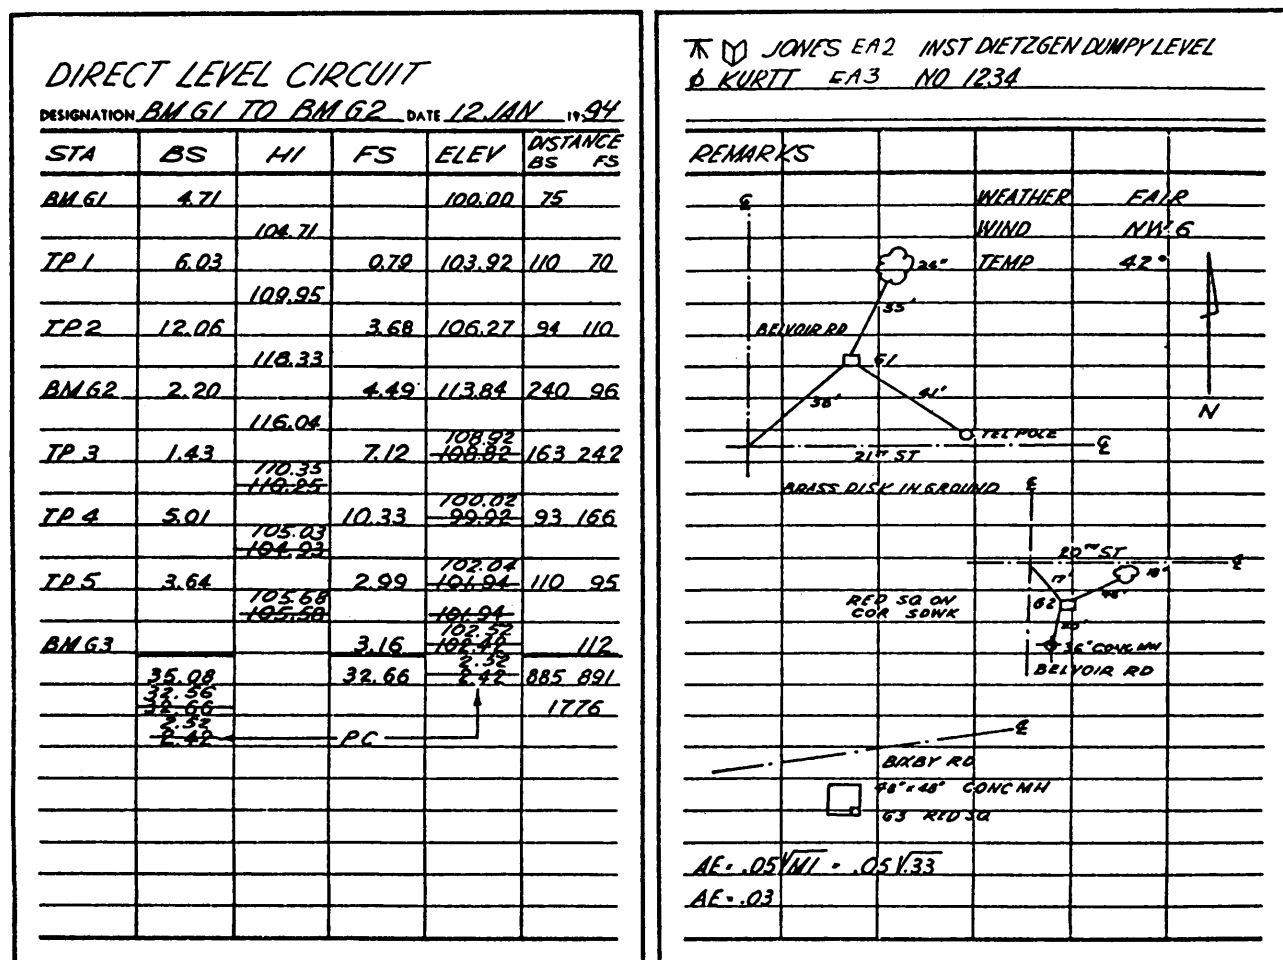 DIRECT LEVEL CIRCUIT
DESIGNATION BM G1 TO BM G2 DATE 12 JAN 19 94
STA BS HI FS ELEV DISTANCE
BS FS
BM G1 4.71 100.00 75
104.71
TP 1 6.03 0.79 103.92 110 70
109.95
TP 2 12.06 3.68 106.27 94 110
118.33
BM G2 2.20 4.49 113.84 240 96
116.04
108.92
TP 3 1.43 7.12 108.82 163 242
110.35
110.25
100.02
TP 4 5.01 10.33 99.92 93 166
105.03
104.93
102.04
TP 5 3.64 2.99 101.94 110 95
105.68
105.58 101.94
102.52
BM G3 3.16 102.42 112
2.52
35.08 32.66 2.42 885 891
32.56
32.66 1776
2.52
2.42 PC
JONES EA2 INST DIETZGEN DUMPY LEVEL
KURTT EA3 NO 1234
REMARKS
WEATHER FAIR
WIND NW 6
TEMP 42°
BELVOIR RD
G1
41'
N
TEL POLE
21ST ST
BRASS DISK IN GROUND
20TH ST
17' 18"
G2
RED SQ ON
COR SDWK
36" CONC MH
BELVOIR RD
BIXBY RD
48" x 48" CONC MH
G3 RED SQ
AE = .05√MI = .05√.33
AE = .03